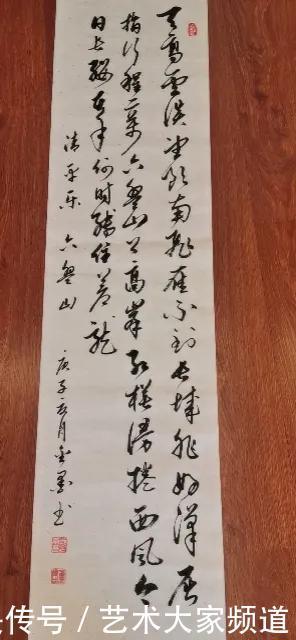 天高雲淡望断南飛雁不到长城非好漢屈
指行程二萬六盤山上高峯红旗漫捲西风今
日长缨在手何时缚住苍龙
清平乐 六盤山
庚子 月 书
传号 / 艺术大家频道